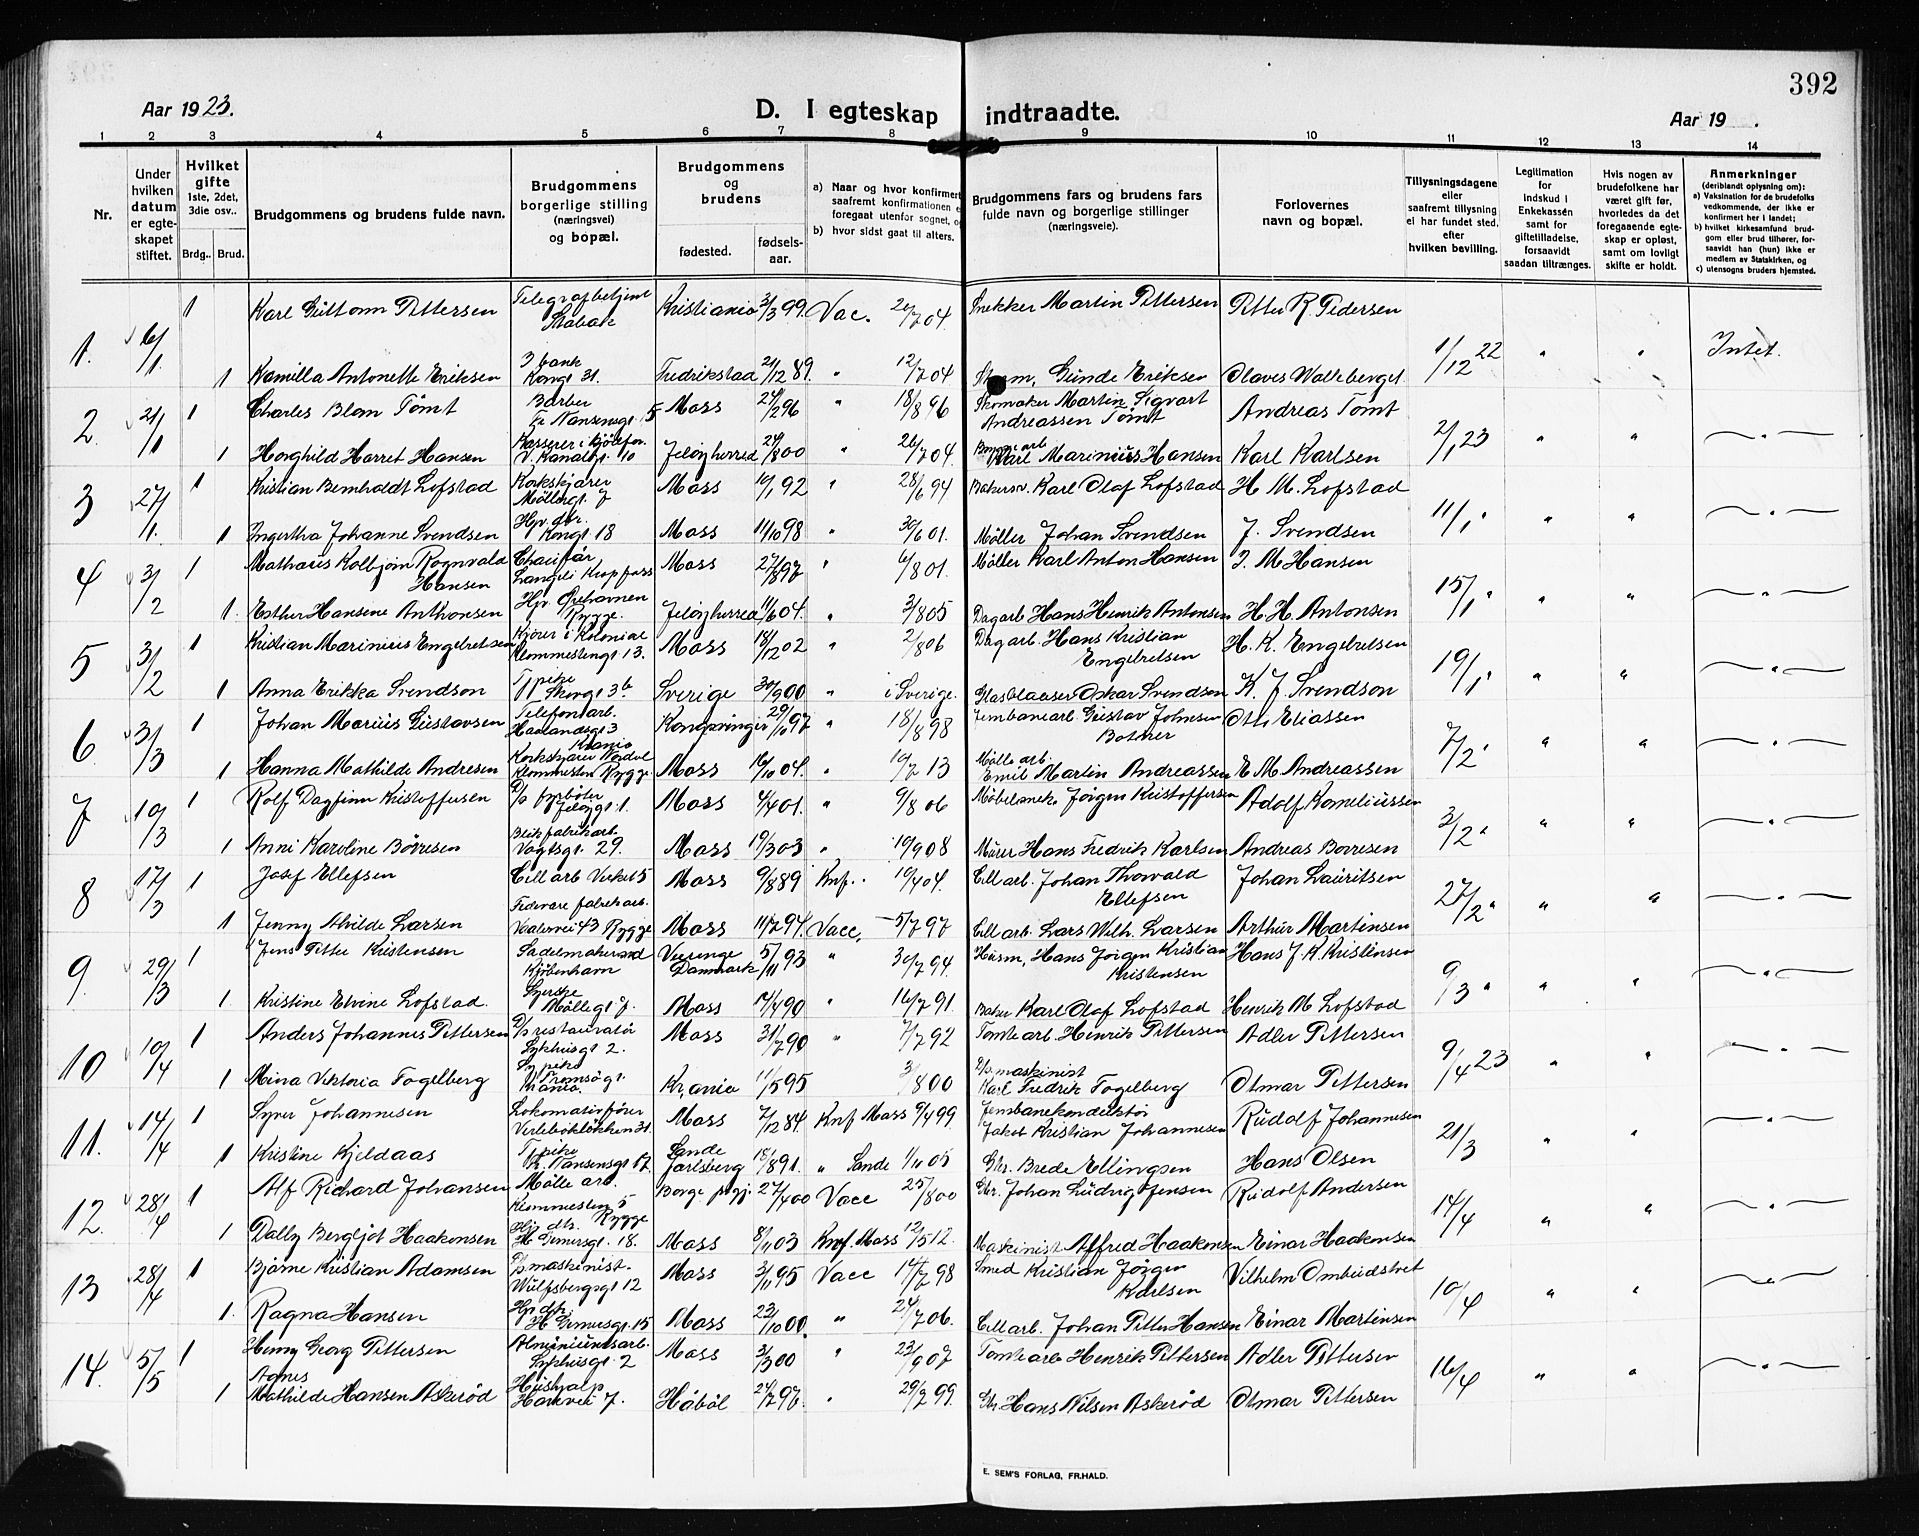 392
Aar 1923.
D. I egteskap indtraadte.
Aar 19 .
1 2 3 4 5 6 7 8 9 10 11 12 13 14
Nr.
Under hvilken datum er egteskapet stiftet.
Hvilket gifte 1ste, 2det, 3die osv..
Brdg.. Brud.
Brudgommens og brudens fulde navn.
Brudgommens borgerlige stilling (næringsvei) og bopæl.
Brudgommens og brudens
fødested. fødselsaar.
a) Naar og hvor konfirmert saafremt konfirmationen e foregaat utenfor sognet, og
b) hvor sidst gaat til alters.
Brudgommens fars og brudens fars fulde navn og borgerlige stillinger (næringsveie).
Forlovernes navn og bopæl.
Tillysningsdagene eller saafremt tillysning ei har fundet sted, efter hvilken bevilling.
Legitimation for indskud i Enkekassén samt for giftetilladelse, forsaavidt saadan tiltrænges.
Hvis nogen av brudefolkene har været gift før, hvorledes da det foregaaende egteskap er opløst, samt om lovligt skifte er holdt.
Anmerkninger (deriblandt oplysning om): a) Vaksination for de brudefolks vedkommende, der ikke er konfirmert her i landet; b) hvilket kirkesamfund brudgom eller brud tilhører, forsaavidt han (hun) ikke er medlem av Statskirken, og c) utensogns bruders hjemsted.
1. 6/1 1 Karl Guttorm Pettersen Telegrafbetjent Stabæk Kristiania 3/3 99. Vac. 20/7 04 Snekker Martin Pettersen Petter R. Pedersen
1 Kamilla Antonette Eriksen I bank Kongsgt 31. Fredrikstad 21/12 89. " 12/7 04 Gunde Eriksen Olaves Walleberget 1/12 22 " " Intet.
2. 21/1 1 Charles Blom Tømt Barber Fr. Nansensgt. 5 Moss 24/2 96 " 18/8 96 Skomaker Martin Sigvart Andreassen Tømt Andreas Tømt
1 Horghild Harret Hansen V. Kanalgt. 10 Jeløy herred 24/8 00 " 26/7 04. Karl Marinius Hansen Karl Karlsen 21/1 23 " " — " —
3 27/1. 1 Kristian Bernhardt Lofstad Korkskjærer Møllegt. 7 Moss 10/1 92 " 28/6 94 Bakersv. Karl Olaf Lofstad H. M. Lofstad
1 Ingertha Johanne Svendsen Hpv. dtr. Kongsgt 18 Moss 11/10 98 " 30/6 01. Møller Johan Svendsen J. Svendsen 11/1 " " " — " —
4 3/2 1 Mathæus Kolbjørn Rognvald Hansen Chauffør Moss 27/8 97 " 6/8 01. Møller Karl Anton Hansen J. M. Hansen
1. Esther Hansine Anthonsen Hpv. Ørehavnen Rygge. Jeløy herred 11/6 04. " 3/8 05 Dagarb Hans Henrik Antonsen H. H. Antonsen 15/1 " " " — " —
5 3/2 1 Kristian Marinius Engebretsen Kjører i Kolonial Klommestengt 13. Moss 18/12 02 " 2/8 06 Dagarb. Hans Kristian Engebretsen H. K. Engebretsen
1 Anna Erikka Svendson Tjpike Skovgt 3b Sverige 30/9 00 " i Sverige. Glasblaaser Oskar Svendsen K. J. Svendson 19/1 " " " — " —
6 3/3 1 Johan Marius Gustavsen Telefonarb. Haslandsgt 3 Krania Kongsvinger 29/10 97 " 18/8 98 Jernbanearb. Gustav Johnsen Botner Otto Eliassen
1 Hanna Mathilde Andresen Korkskjærer Klommesten Rygge Moss 16/10 04. " 10/7 13 Mølle arb. Emil Martin Andreassen E. M. Andreassen 7/2 " " " — " —
7 10/3 1 Rolf Dagfinn Kristoffersen D/s fyrbøter Jeløgt. 1. Moss 4/4 01. " 9/8 06 Møbelsnek. Jørgen Kristoffersen Adolf Korneliussen
1 Anni Karoline Børresen Blikfabrikarb. Vogtsgt. 29. Moss 10/3 03 " 10/9 08 Murer Hans Fredrik Karlsen Andreas Borresen 3/2 " " " — " —
8 17/3 1 Josef Ellefsen Cell arb Verket 5 Moss 9/8 89 Knf.. 10/4 04. Cell arb. Johan Thorvald Ellefsen Johan Lauritsen
1 Jenny Alvilde Larsen Federvare fabrikarb. Vaalervei 43 Rygge Moss 11/2 94. Vacc. 5/7 97 Cell arb. Lars Wilh. Larsen Arthur Martinsen 27/2 " " " — " —
9. 29/3 1 Jens Petter Kristensen Sadelmakersvd Kjøbenhavn Veerenge Danmark 5/11 93 " 30/7 94. Husm. Hans Jørgen Kristian Kristensen Hans J. K. Kristensen
1. Kristine Elvine Lofstad. Syerske Møllegt 7. Moss 17/4 90 " 16/7 91. Baker Karl Olaf Lofstad Henrik M. Lofstad 9/3 " " " — " —
10 10/4 1 Anders Johannes Pettersen D/s restauratør Sykhusgt 2. Moss 31/7 90 " 7/7 92 Tomtearb. Henrik Pettersen Adler Pettersen
1 Mina Viktoria Fogelberg Sypike Tromsøgt. Krania. Kr,ania 11/5 95 3/8 00 D/s. maskinist Karl Fredrik Fogelberg Otmar Pettersen 9/4 23 " " — " —
11. 14/4 1 Syver Johannesen Lokomotivfører Verlebøkløkken 31. Moss 7/12 84. Knf Moss 9/4 99 Jernbanekonduktør Jakob Kristian Johannesen Rudolf Johannesen
1 Kristine Kjeldaas Tjpike Fr. Nansensgt 17. Sande Jarlsberg 18/8 91. " Sande 1/11 05 Gbr. Brede Ellingsen Hans Olsen 21/3 " " — " —
12. 28/4 1 Alf Richard Johansen Mølle arb. Klommesteng 5 Rygge Borge p.gj. 27/4 00 Vacc 25/8 00 Gbr. Johan Ludvig Jensen Rudolf Andersen
1 Dally Bergljot Haakonsen Hj. dtr. H. Gernersgt. 18. Moss 8/11 03 Knf. Moss 12/5 12. Maskinist Alfred Haakonsen Einar Haakonsen 14/4 " " — " —
13 28/4 1 Bjarne Kristian Adamsen D/s maskinist. Wulfsbergsgt 12 Moss 3/11 95 Vacc 14/7 98 Smed Kristian Jørgen Karlsen Vilhelm Ombudstvet
1. Ragna Hansen Hpv. dtr. H. Gernersgt. 15 Moss 23/10 00. " 24/7 06. Cell arb. Johan Petter Hansen Einar Martinsen 10/4 " " — " —
14. 5/5 1 Henry Georg Pettersen Almeniumsarb. Sykhusgt. 2 Moss 3/3 00 " 23/9 07 Tomtearb Henrik Pettersen Adler Pettersen
1 Agnes Mathilde Hansen Askerød Hushjælp Havnvei 7. Høbøl 24/7 97. " 29/7 99. Gbr. Hans Nilsen Askerød Otmar Pettersen 16/4 " " — " —
E. SEM'S FORLAG, FR.HALD.